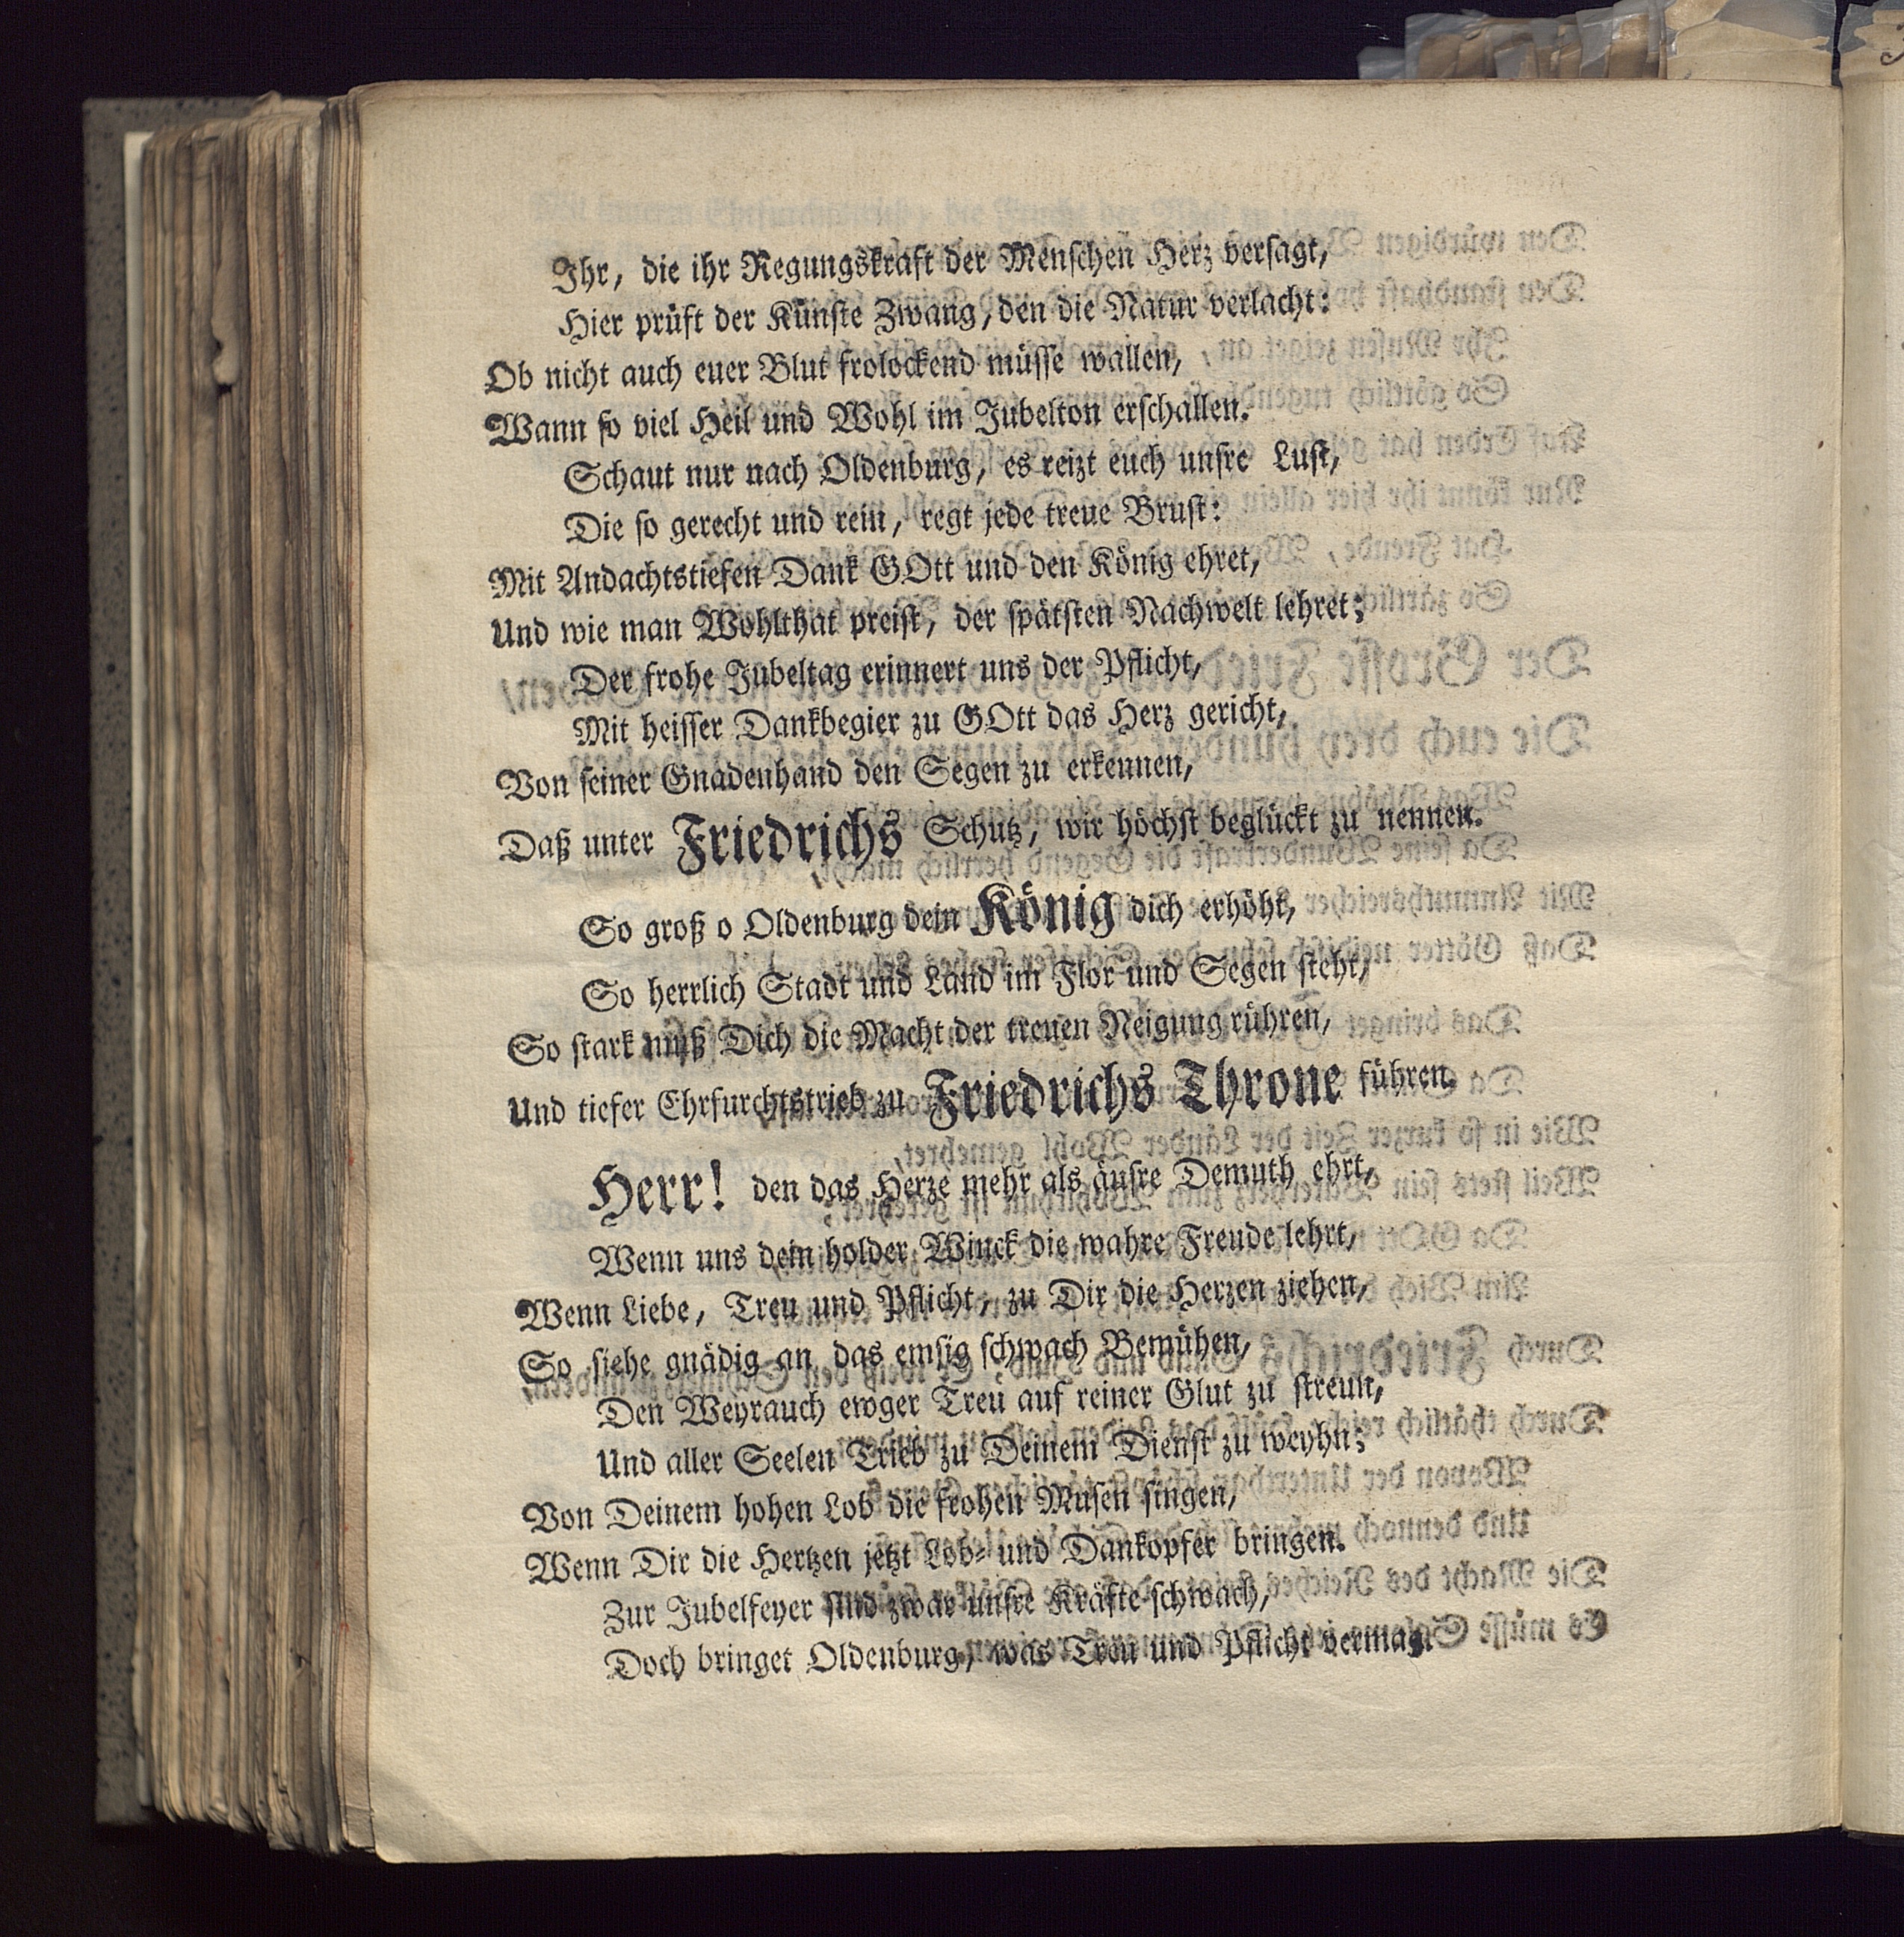 Ihr, die ihr Regungskraft der Menschen Herz versagt,
Hier prüft der Künste Zwang, den die Natur verlacht:
Ob nicht auch euer Blut frolockend müsse wallen,
Wann so viel Heil und Wohl im Jubelton erschallen.
Schaut nur nach Oldenburg, es reizt euch unsre Lust,
Die so gerecht und rein, regt jede treue Brust:
Mit Andachtstiefen Dank GOtt und den König ehret,
Und wie man Wohlthat preist, der spätsten Nachwelt lehret;
Der frohe Jubeltag erinnert uns der Pflicht,
Mit heisser Dankbegier zu GOtt das Herz gericht,
Von seiner Gnadenhand den Segen zu erkennen,
Daß unter Friedrichs Schutz, wir höchst beglückt zu nennen.
So groß o Oldenburg dein König dich erhöht,
So herrlich Stadt und Land im Flor und Segen steht,
So stark muß Dich die Macht der treuen Neigung rühren,
Und tiefer Ehrfurchtstrieb zu Friedrichs Throne führen.
Herr! den das Herze mehr als äusre Demuth ehrt,
Wenn uns dein holder Winck die wahre Freude lehrt,
Wenn Liebe, Treu und Pflicht, zu Dir die Herzen ziehen,
So siehe gnädig an das emsig schwach Bemühen,
Den Weyrauch ewger Treu auf reiner Glut zu streun,
Und aller Seelen Trieb zu Deinem Dienst zu weyhn;
Von Deinem hohen Lob die frohen Musen singen,
Wenn Dir die Hertzen jetzt Lob- und Dankopfer bringen.
Zur Jubelfeyer sind zwar unsre Kräfte schwach,
Doch bringet Oldenburg, was Treu und Pflicht vermag.